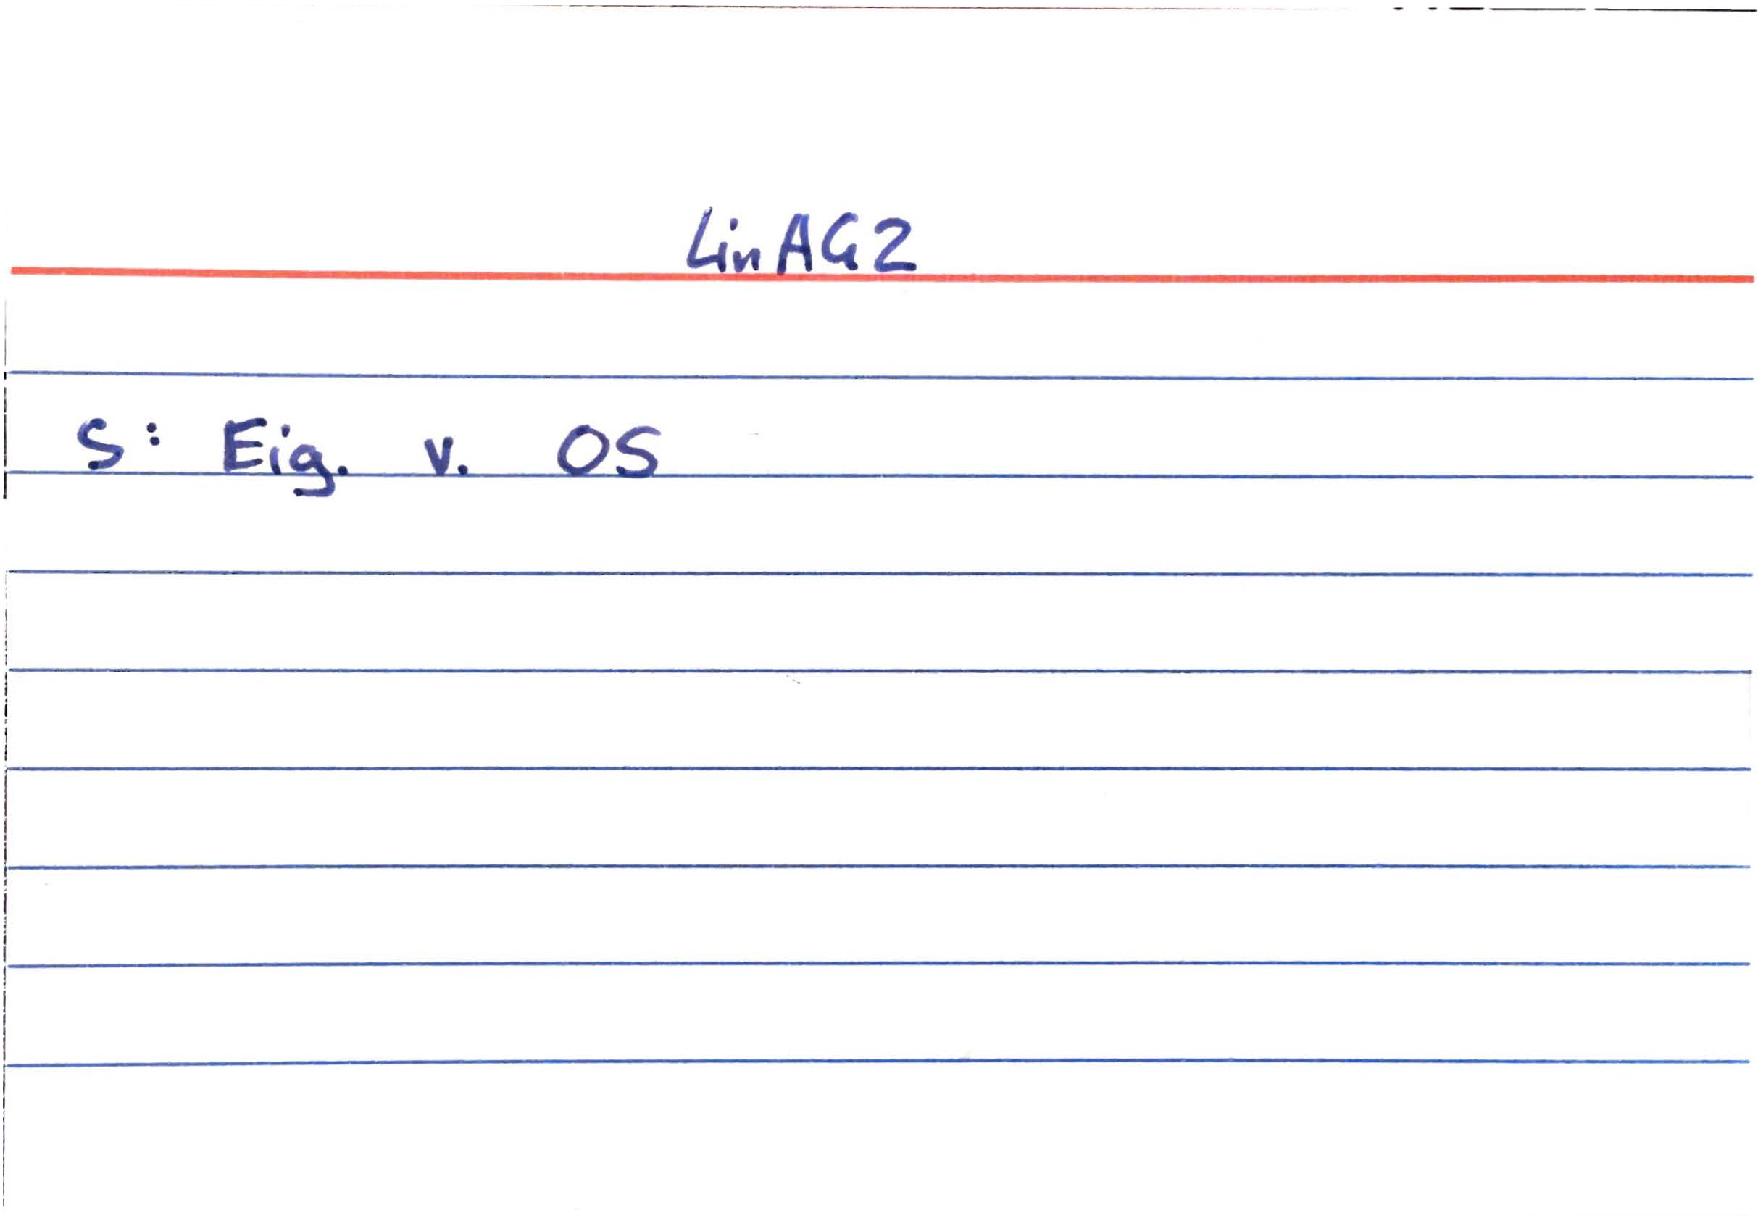 LinAG2
S: Eig. v. OS